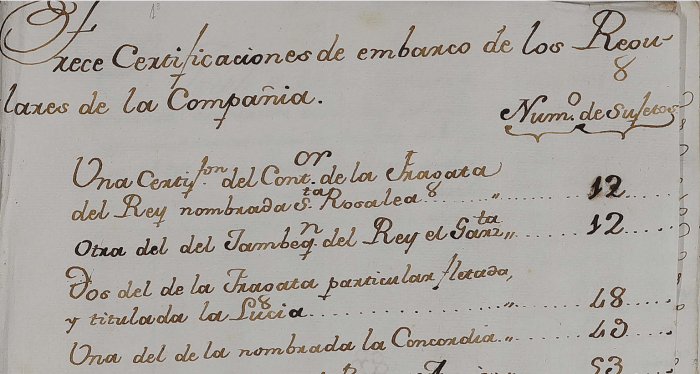 Trece Certificaciones de embarco de los Regu-
lares de la Compañia.
Num.º de Sujetos
Una Certif.on del Cont.or de la Fragata
del Rey nombrada S.ta Rosalea „ 12
Otra del del Jambeq.n del Rey el Garz.ta „ 12
Dos del de la Fragata particular fletada,
y titulada la Lucia „ 48
Una del de la nombrada la Concordia „ 49
53